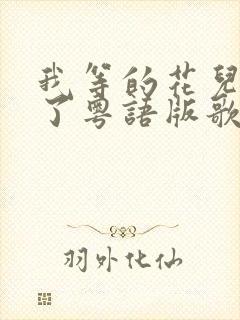 我等的花兒
了粵語版歌
羽外化仙